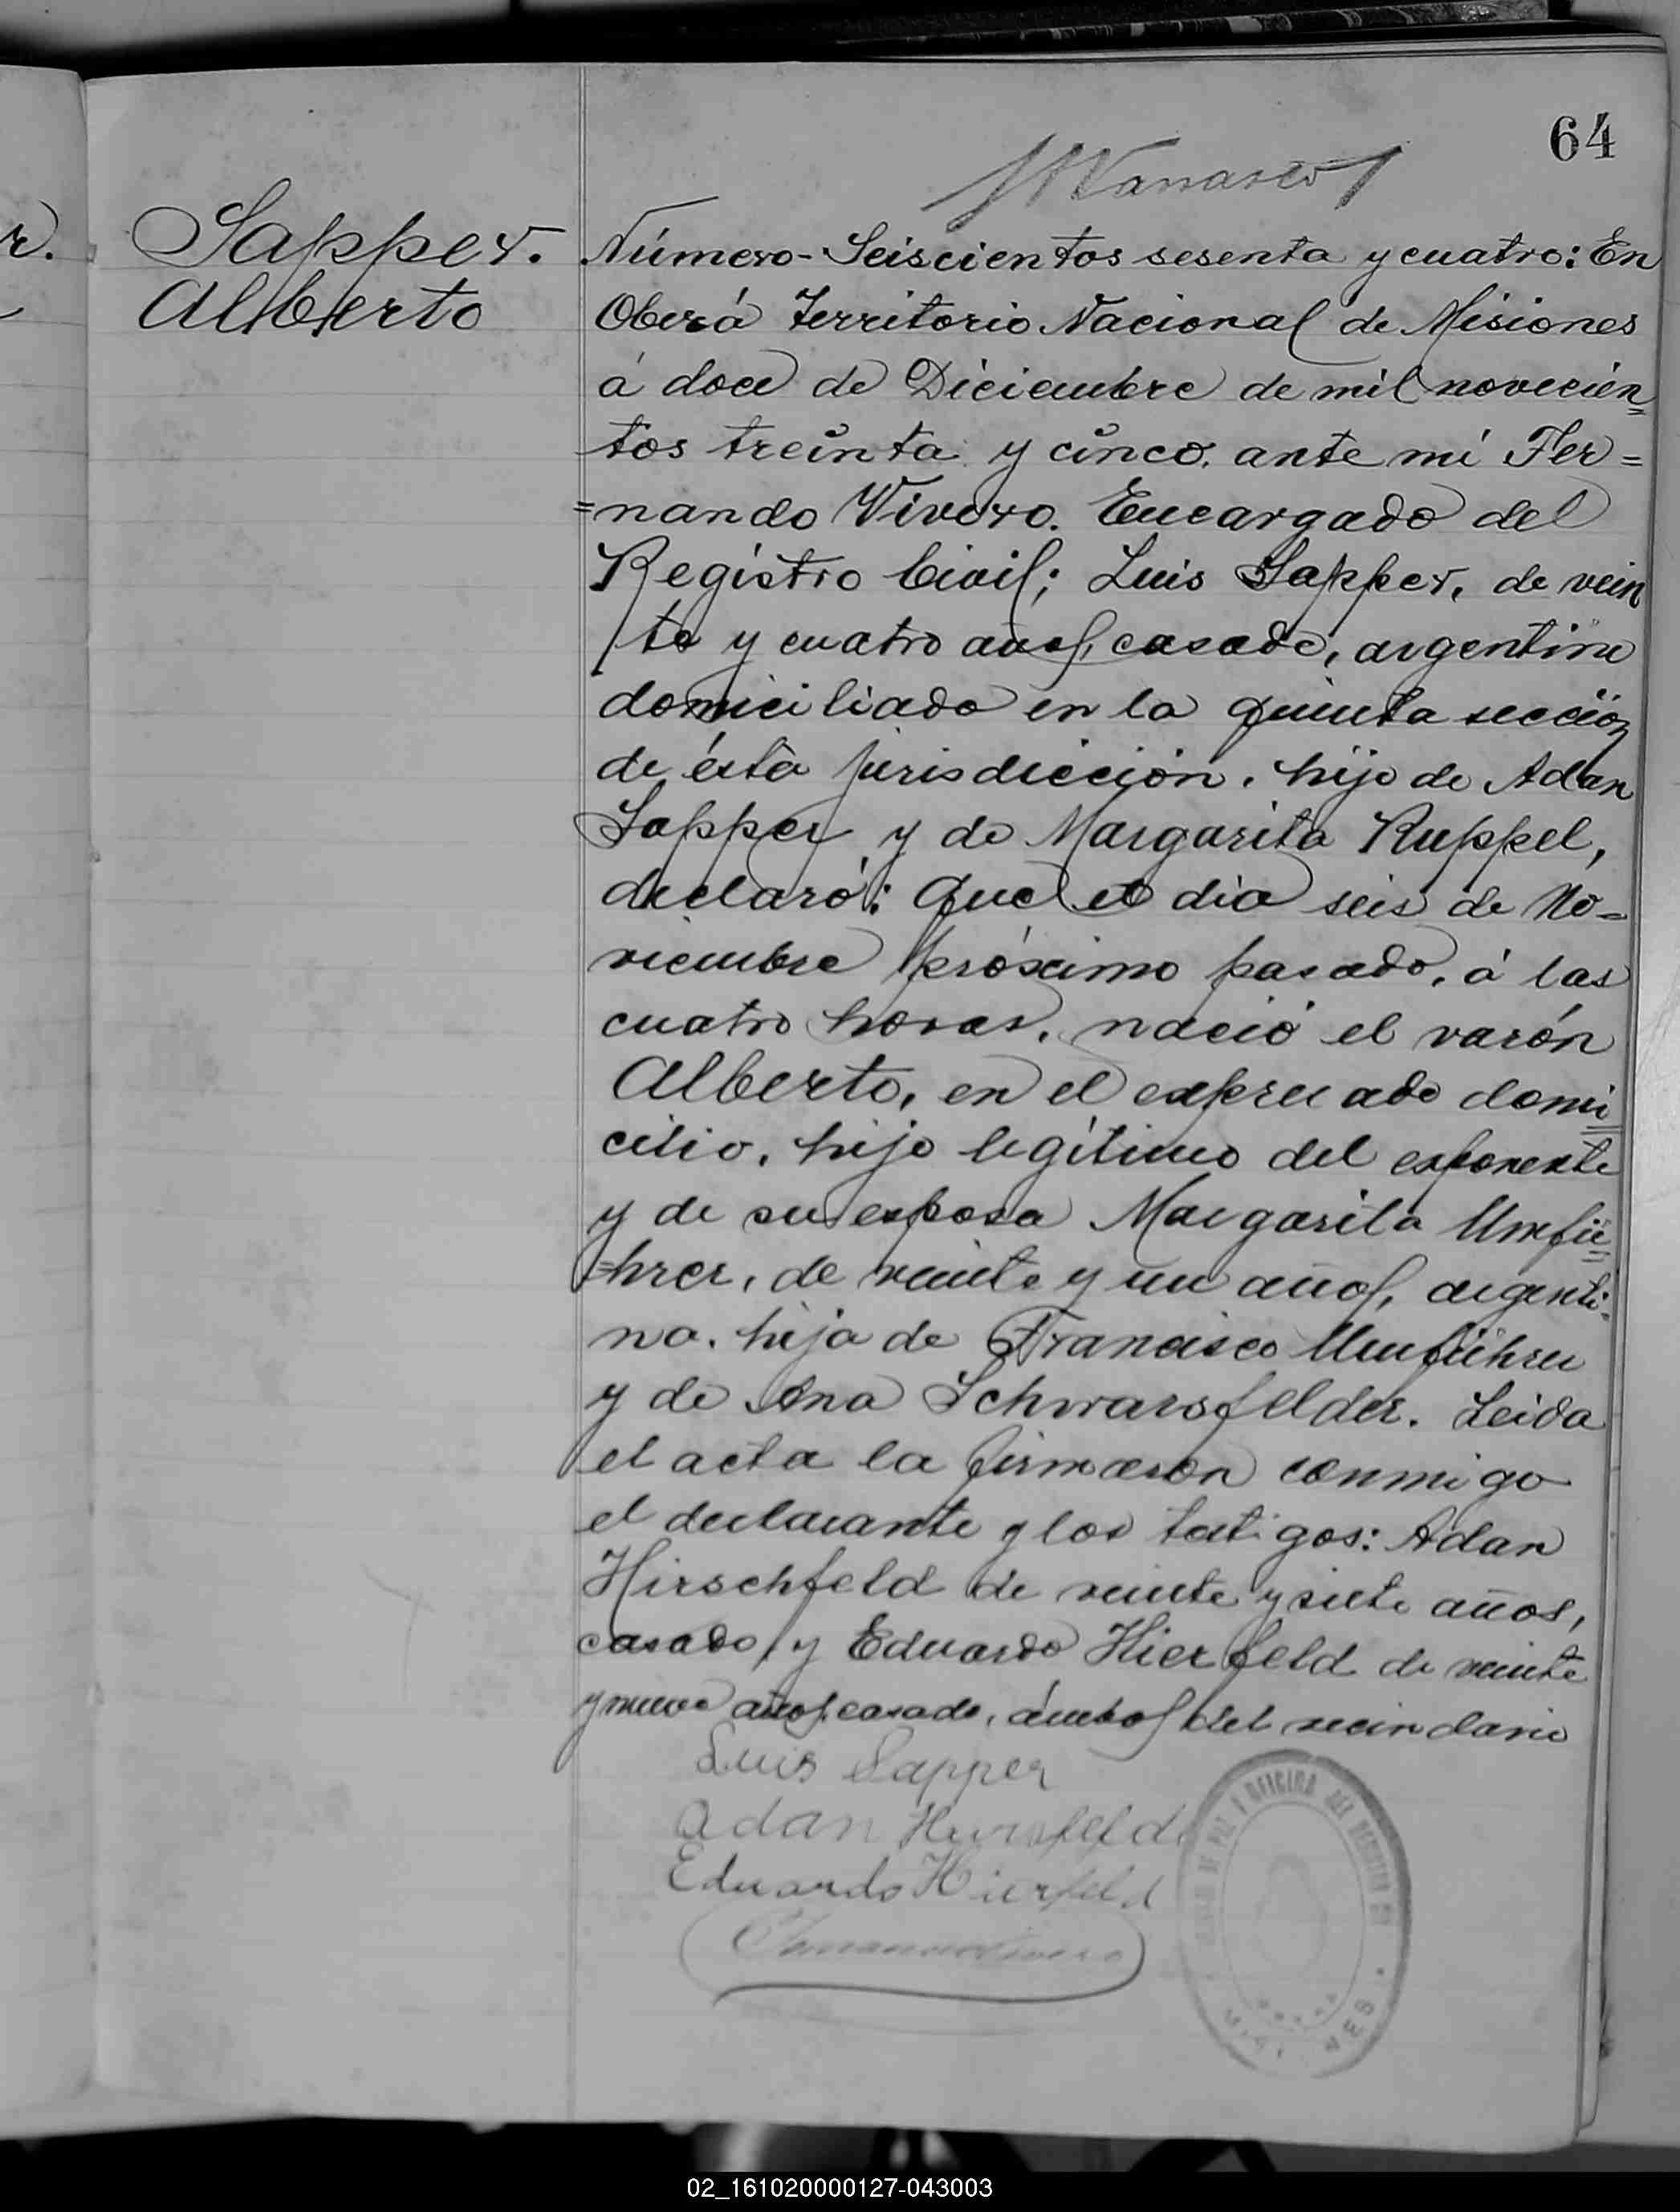 64
Sapper.
Alberto
Número-Seiscientos sesenta y cuatro: En
Oberá Territorio Nacional de Misiones
á doce de Diciembre de mil novecien=
tos treinta y cinco. ante mí Fer=
=nando Vivero. Encargado del
Registro Civil; Luis Sapper, de vein
te y cuatro años, casado, argentino
domiciliado en la quinta sección
de ésta jurisdicción, hijo de Adan
Sapper y de Margarita Ruppel,
declaró: Que el dia seis de No=
viembre próximo pasado, á las
cuatro horas, nació el varón
Alberto, en el expresado domi=
cilio, hijo legítimo del exponente
y de su esposa Margarita Umfü=
=hrer, de veinte y un años, argenti=
na. hija de Francisco Umführer
y de Ana Schwarsfelder. Leida
el acta la firmaron conmigo
el declarante y los testigos: Adan
Hirschfeld de veinte y siete años,
casado, y Eduardo Hierfeld de veinte
y nueve años, casado, ámbos del vecindario
Luis Sapper
Adan
Eduardo Hierfeld
DE PAZ Y OFICINA DEL REGISTRO
02_161020000127-043003